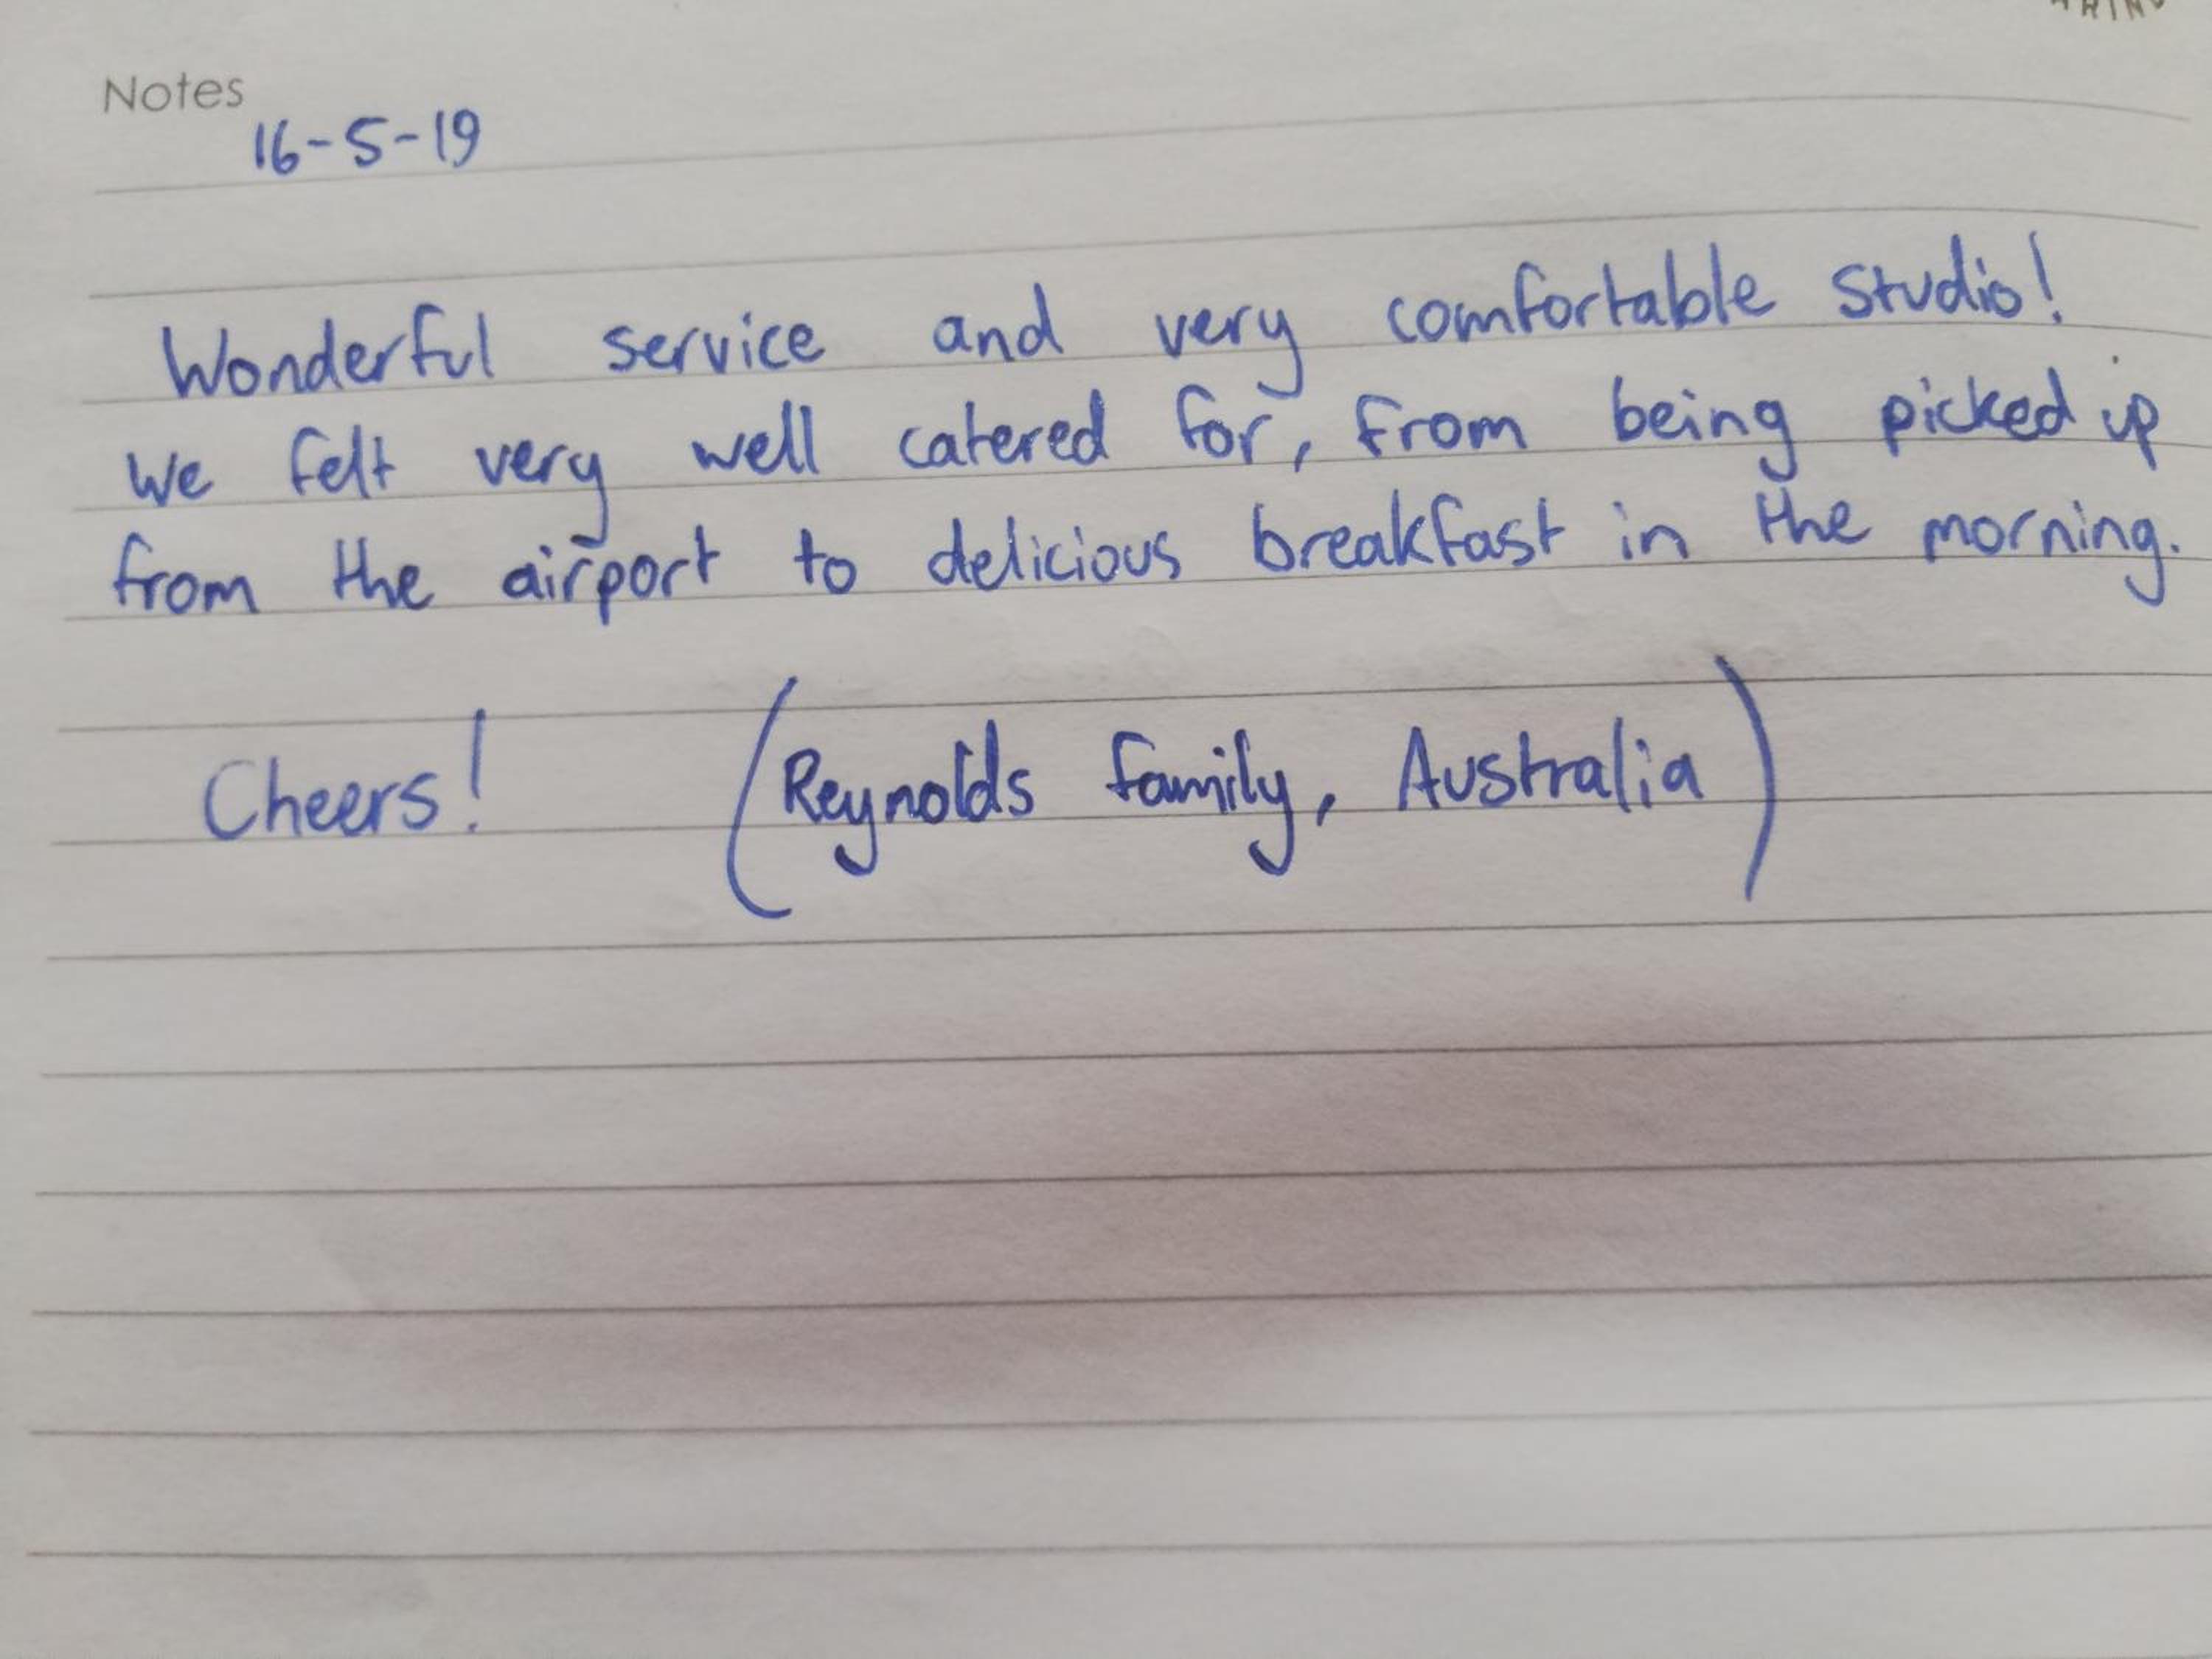 Notes
16-5-19
Wonderful service and very comfortable studio!
We felt very well catered for, from being picked up
from the airport to delicious breakfast in the morning.
Cheers! (Reynolds family, Australia)